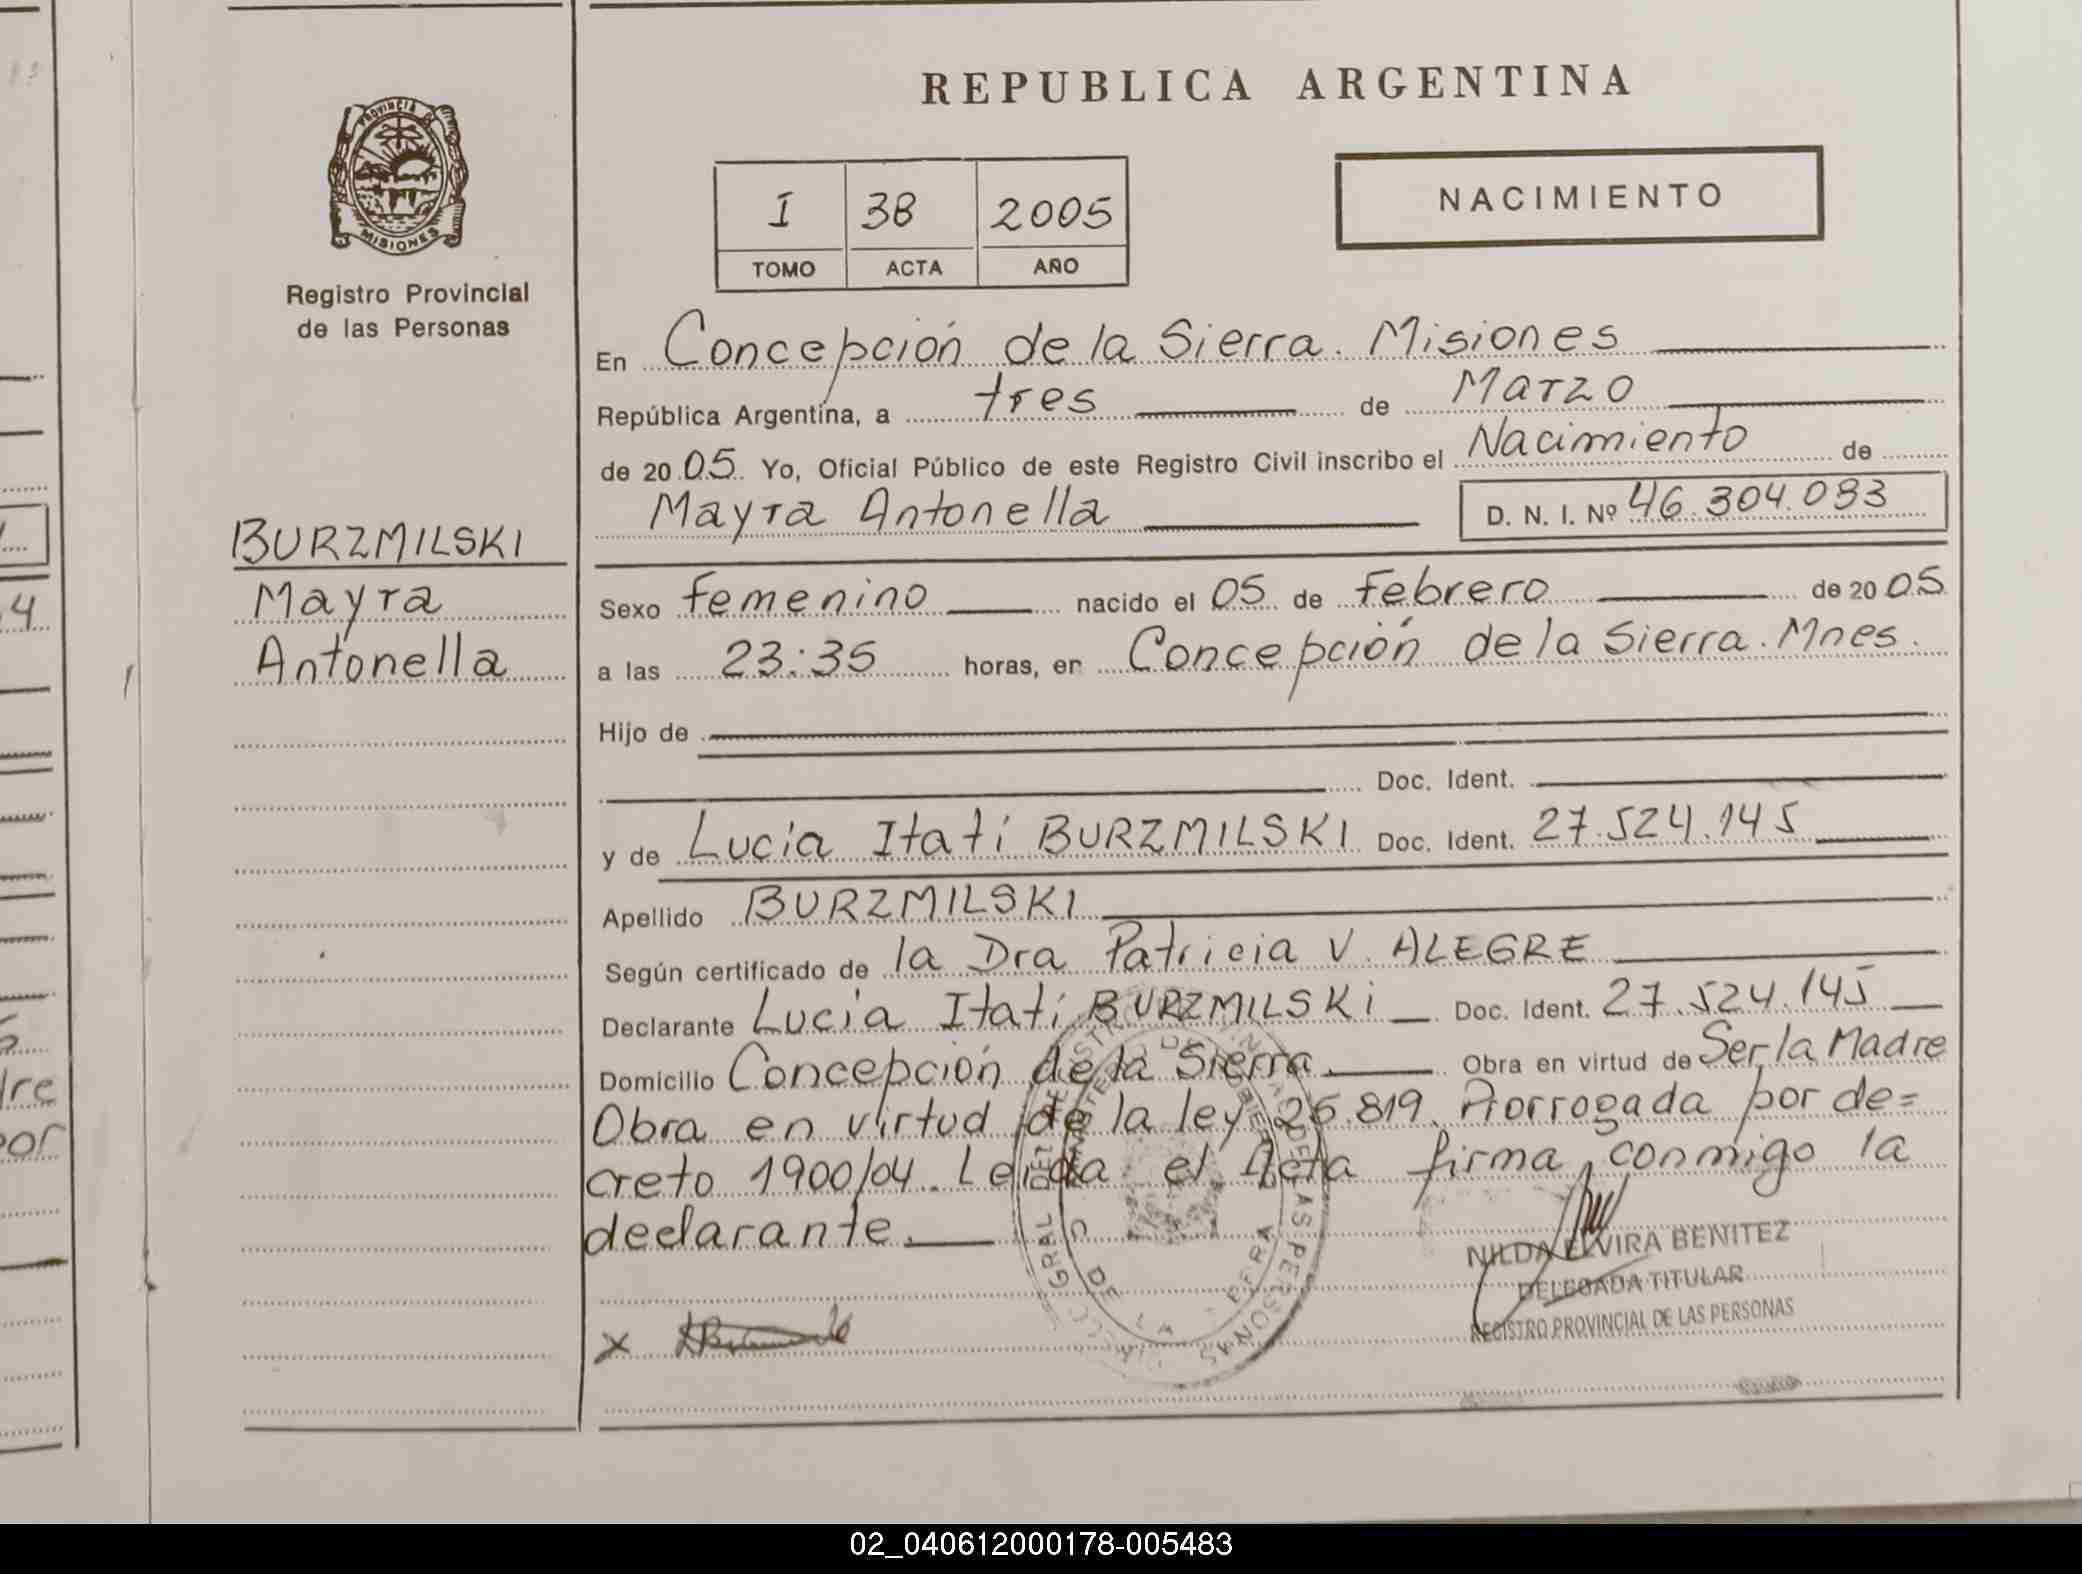 REPUBLICA ARGENTINA
PROVINCIA DE
MISIONES
Registro Provincial
de las Personas
I 38 2005
TOMO ACTA AÑO
NACIMIENTO
En Concepción de la Sierra. Misiones
República Argentina, a tres de Marzo
de 2005. Yo, Oficial Público de este Registro Civil inscribo el Nacimiento de
Mayra Antonella D. N. I. Nº 46.304.093
BURZMILSKI
Mayra
Antonella
Sexo femenino nacido el 05 de Febrero de 2005
a las 23:35 horas, en Concepción de la Sierra. Mnes.
Hijo de
Doc. Ident.
y de Lucia Itatí BURZMILSKI Doc. Ident. 27.524.145
Apellido BURZMILSKI
Según certificado de la Dra Patricia V. ALEGRE
Declarante Lucia Itatí BURZMILSKi Doc. Ident. 27.524.145
Domicilio Concepción de la Sierra Obra en virtud de Ser la Madre
Obra en virtud de la ley 25.819. Prorrogada por de=
creto 1900/04. Leída el Acta firma conmigo la
declarante.
NILDA ELVIRA BENITEZ
DELEGADA TITULAR
REGISTRO PROVINCIAL DE LAS PERSONAS
x
02_040612000178-005483